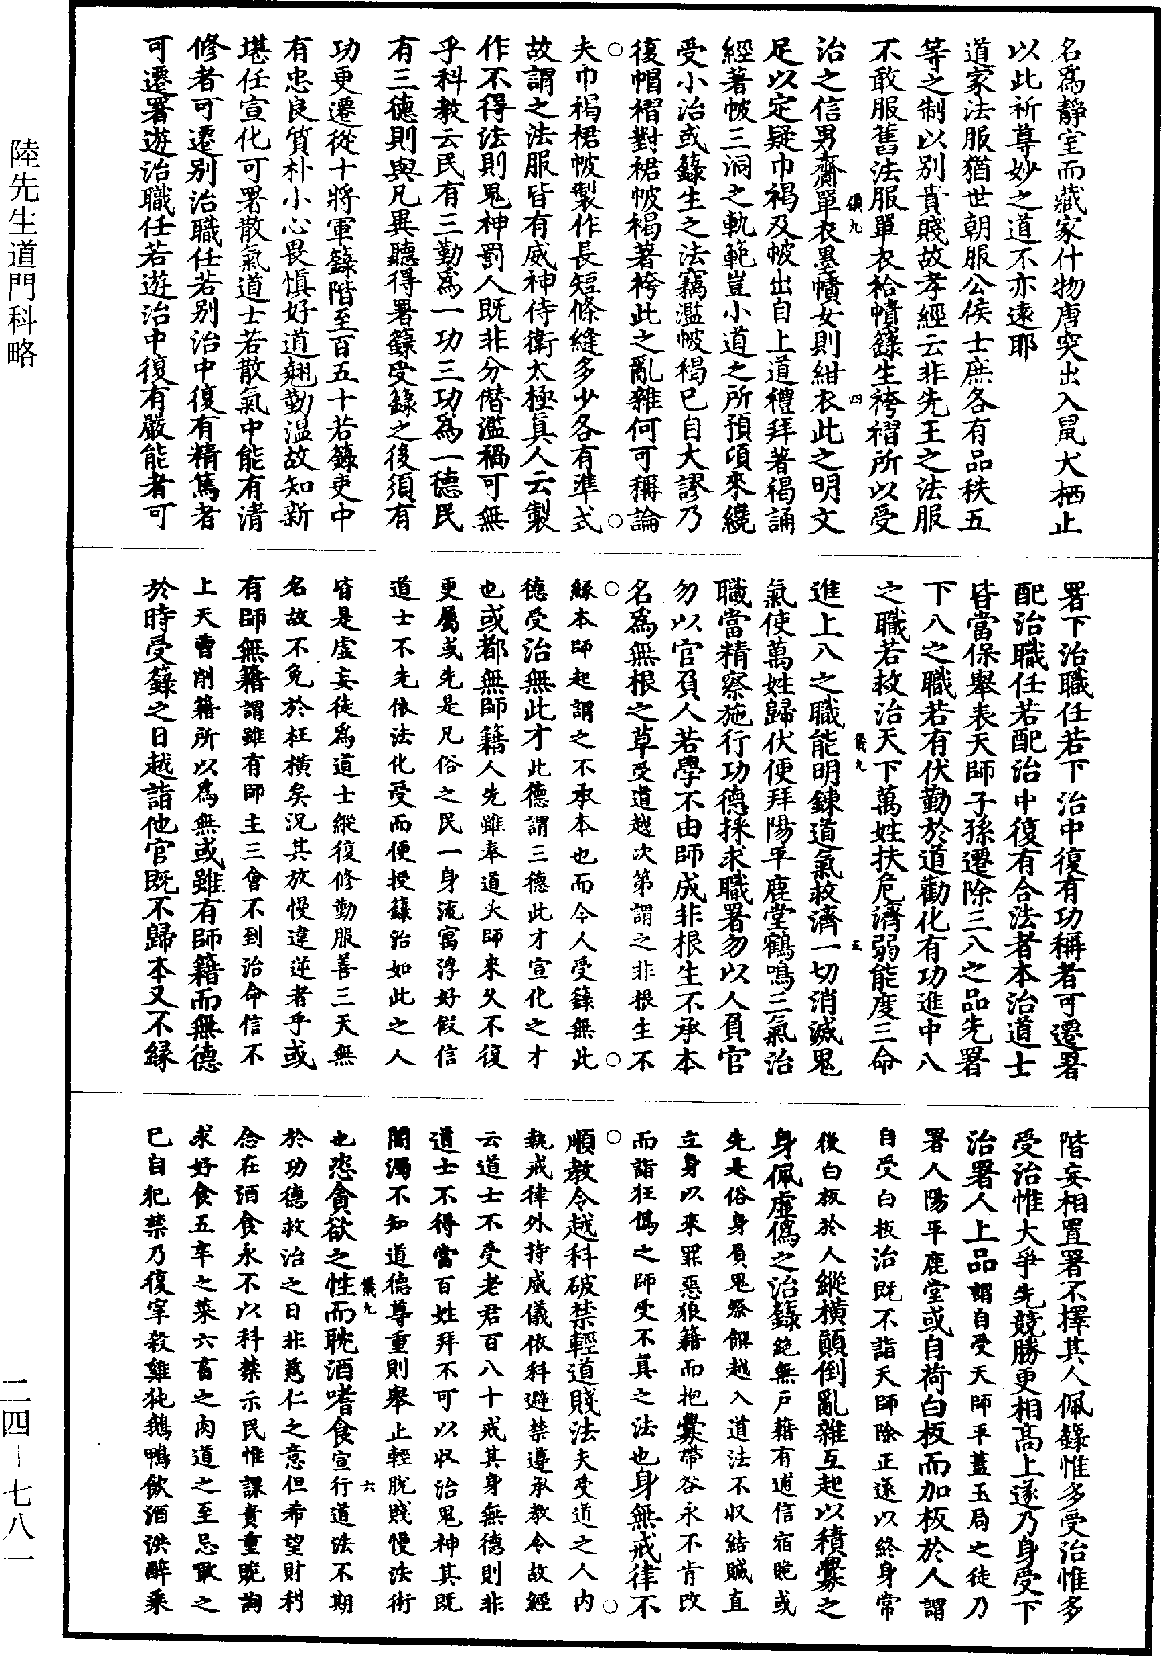 名爲靜室而藏家什物唐突出入鼠犬栖止
以此祈尊妙之道不亦遠耶
道家法服猶世朝服公侯士庶各有品秩五
等之制以別貴賤故孝經云非先王之法服
不敢服舊法服單衣袷幘籙生袴褶所以受
治之信男齋單衣墨幘女則紺衣此之明文
足以定疑巾褐及帔出自上道禮拜著褐誦
經著帔三洞之軌範豈小道之所預頃來繞
受小治或籙生之法竊濫帔褐已自大謬乃
復帽褶對裙帔褐著袴此之亂雜何可稱論
夫巾褐裙帔製作長短條縫多少各有準式
故謂之法服皆有威神侍衛太極真人云製
作不得法則鬼神罰人既非分僭濫禍可無
乎科教云民有三勤爲一功三功爲一德民
有三德則與凡異聽得署籙受籙之後須有
功更遷從十將軍籙階至百五十若籙吏中
有忠良質朴小心畏慎好道翹勤溫故知新
堪任宣化可署散氣道士若散氣中能有清
修者可遷別治職任若別治中復有精篤者
可遷署遊治職任若遊治中復有嚴能者可
署下治職任若下治中復有功稱者可遷署
配治職任若配治中復有合法者本治道士
皆當保舉表天師子孫遷除三八之品先署
下八之職若有伏勤於道勸化有功進中八
之職若救治天下萬姓扶危濟弱能度三命
進上八之職能明鍊道氣救濟一切消滅鬼
氣使萬姓歸伏便拜陽平鹿堂鶴鳴三氣治
職當精察施行功德採求職署勿以人負官
勿以官負人若學不由師成非根生不承本
名爲無根之草受道越次第謂之非根生不
緣本師起謂之不承本也而今人受籙無此
德受治無此才此德謂三德此才宣化之才
也或都無師籍人先雖奉道大師來久不復
更屬或先是凡俗之民一身流寓浮好假信
道士不先依法化受而便授籙治如此之人
皆是虛妄徒爲道士縱復修勤服善三天無
名故不免於枉橫矣況其放慢違逆者乎或
有師無籍謂雖有師主三會不到治命信不
上天曹削籍所以爲無或雖有師籍而無德
於時受籙之日越詣他官既不歸本又不緣
階妄相置署不擇其人佩籙惟多受治惟多
受治惟大爭先競勝更相高上遂乃身受下
治署人上品謂自受天師平蓋玉局之徒乃
署人陽平鹿堂或自荷白板而加板於人謂
自受白板治既不詣天師除正遂以終身常
後白板於人縱橫顛倒亂雜互起以積釁之
身佩虛僞之治籙絕無戶籍有道信宿晚或
先是俗身負鬼祭餟越入道法不收結贓直
立身以來罪惡狼籍而抱釁帶咎永不肯改
而詣狂僞之師受不真之法也身無戒律不
順教令越科破禁輕道賤法夫受道之人內
執戒律外持威儀依科避禁遵承教令故經
云道士不受老君百八十戒其身無德則非
道士不得當百姓拜不可以收治鬼神其既
闇濁不知道德尊重則舉止輕脫賤慢法術
也恣貪欲之性而耽酒嗜食宣行道法不期
於功德救治之日非慈仁之意但希望財利
念在酒食永不以科禁示民惟課責重賧
求好食五辛之菜六畜之肉道之至忌噉之
已自犯禁乃復宰殺雞㹠鵝鴨飲酒洪醉乘
儀九 四
儀九 五
儀九 六
陸先生道門科略
二四－七八一